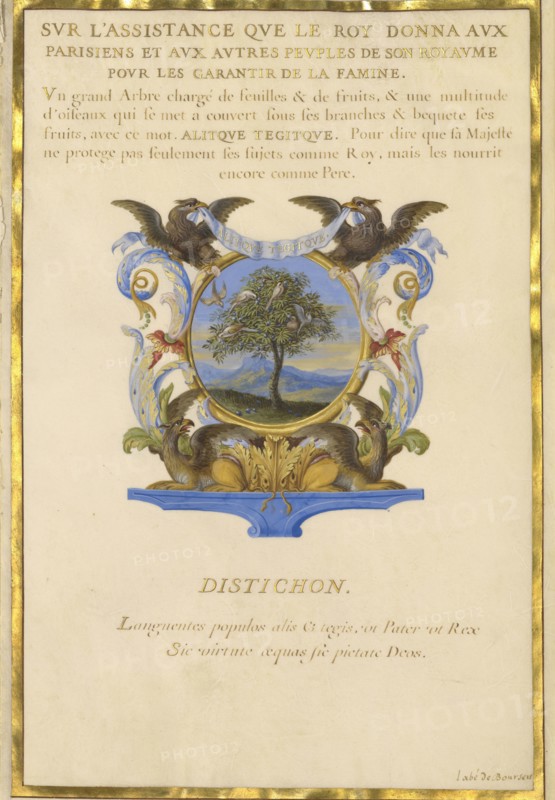 SVR L'ASSISTANCE QVE LE ROY DONNA AVX
PARISIENS ET AVX AVTRES PEVPLES DE SON ROYAVME
POVR LES GARANTIR DE LA FAMINE.
Vn grand Arbre chargé de feuilles & de fruits, & une multitude
d'oiseaux qui se met a couvert sous ses branches & bequete ses
fruits, avec ce mot. ALITQVE TEGITQVE. Pour dire que sa Majesté
ne protege pas seulement ses sujets comme Roy, mais les nourrit
encore comme Pere.
ALITQVE TEGITQVE.
DISTICHON.
Languentes populos alis et tegis, vt Pater vt Rex
Sic virtute æquas sic pietate Deos.
l'abé de Bourzeis
PHOTO12